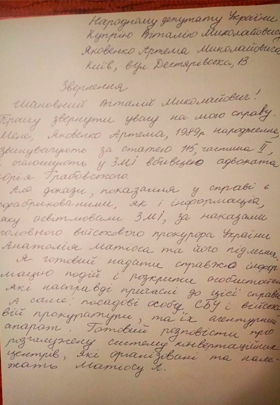 Народному депутату України
Куприю Віталію Миколайовичу
Яковенко Артема Миколайовича
Київ, вул Дегтярівська, 13
Звернення
Шановний Віталій Миколайович!
Прошу звернути увагу на мою справу.
Мене, Яковенко Артема, 1989р народження,
звинувачують за статею 115, частина ІІ,
і оголошують у ЗМІ вбивцею адвоката
Юрія Грабовського.
Але докази, показання у справі є
сфабрикованими, як і інформація,
яку освітлювали ЗМІ, за наказами
головного військового прокурора України
Анатолія Матіоса та його підлеглих.
Я готовий надати справжню інфор
мацію подій і розкрити особистостей
які насправді причасні до цієї справи
А саме: посадові особи, СБУ і військо
вій прокуратури, та їх агентурний
апарат. Готовий розповісти про
розгалужену систему конвертаційних
центрів, які організвані та нале-
жать Матіосу А.